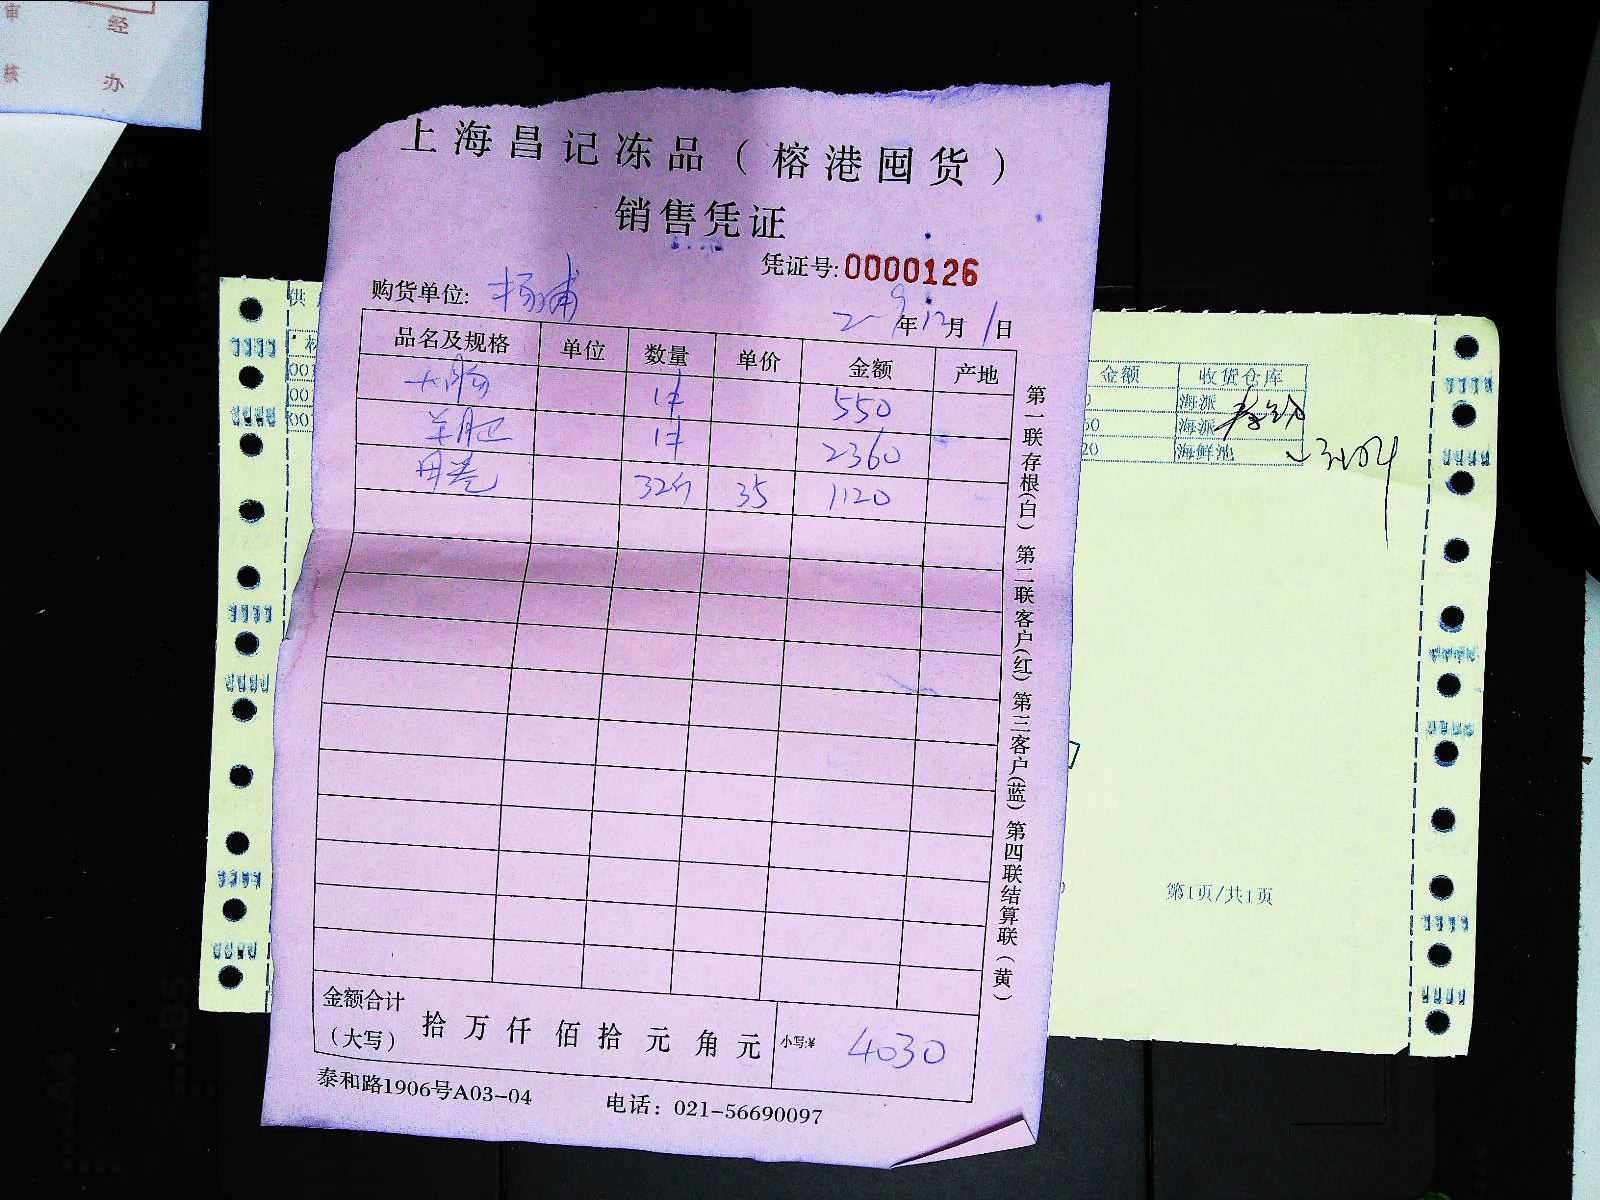 审 经
核 办
上海昌记冻品（榕港囤货）
销售凭证
凭证号: 0000126
购货单位: 杨浦
年12月1日
品名及规格 单位 数量 单价 金额 产地
大肠 1件 550
羊肥 1件 2360
丹卷 32个 35 1120
金额合计
（大写） 拾 万 仟 佰 拾 元 角 元 小写:¥ 4030
泰和路1906号A03-04 电话：021-56690097
第一联存根(白) 第二联客户(红) 第三客户(蓝) 第四联结算联(黄)
供
金额 收货仓库
海派
60 海派
20 海鲜池
第1页/共1页